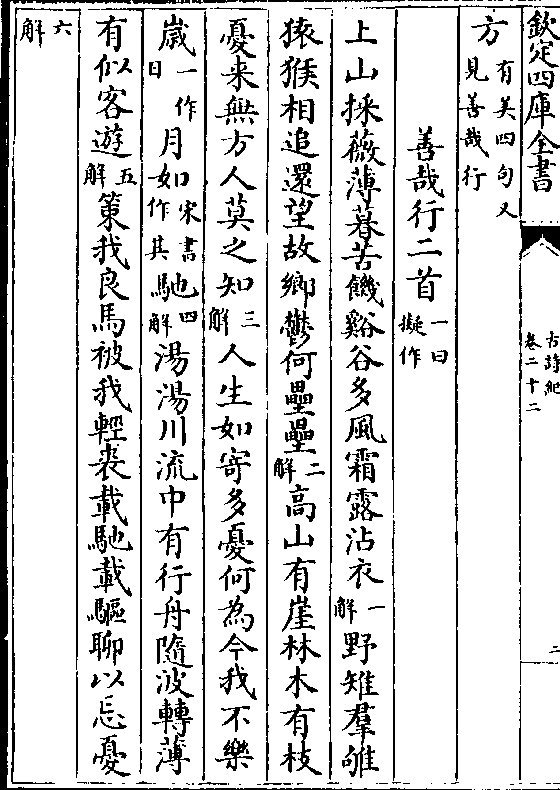 欽定四庫全書
古詩紀
卷二十二
二
方有美四句又見善哉行
善哉行二首一曰擬作
上山採薇薄暮苦饑谿谷多風霜露沾衣一解野雉羣雊
猿猴相追還望故鄉鬱何壘壘二解高山有崖林木有枝
憂来無方人莫之知三解人生如寄多憂何為今我不樂
歲一作日月如宋書如作其馳四解湯湯川流中有行舟隨波轉薄
有似客遊五解策我良馬被我輕裘載馳載驅聊以忘憂
六解